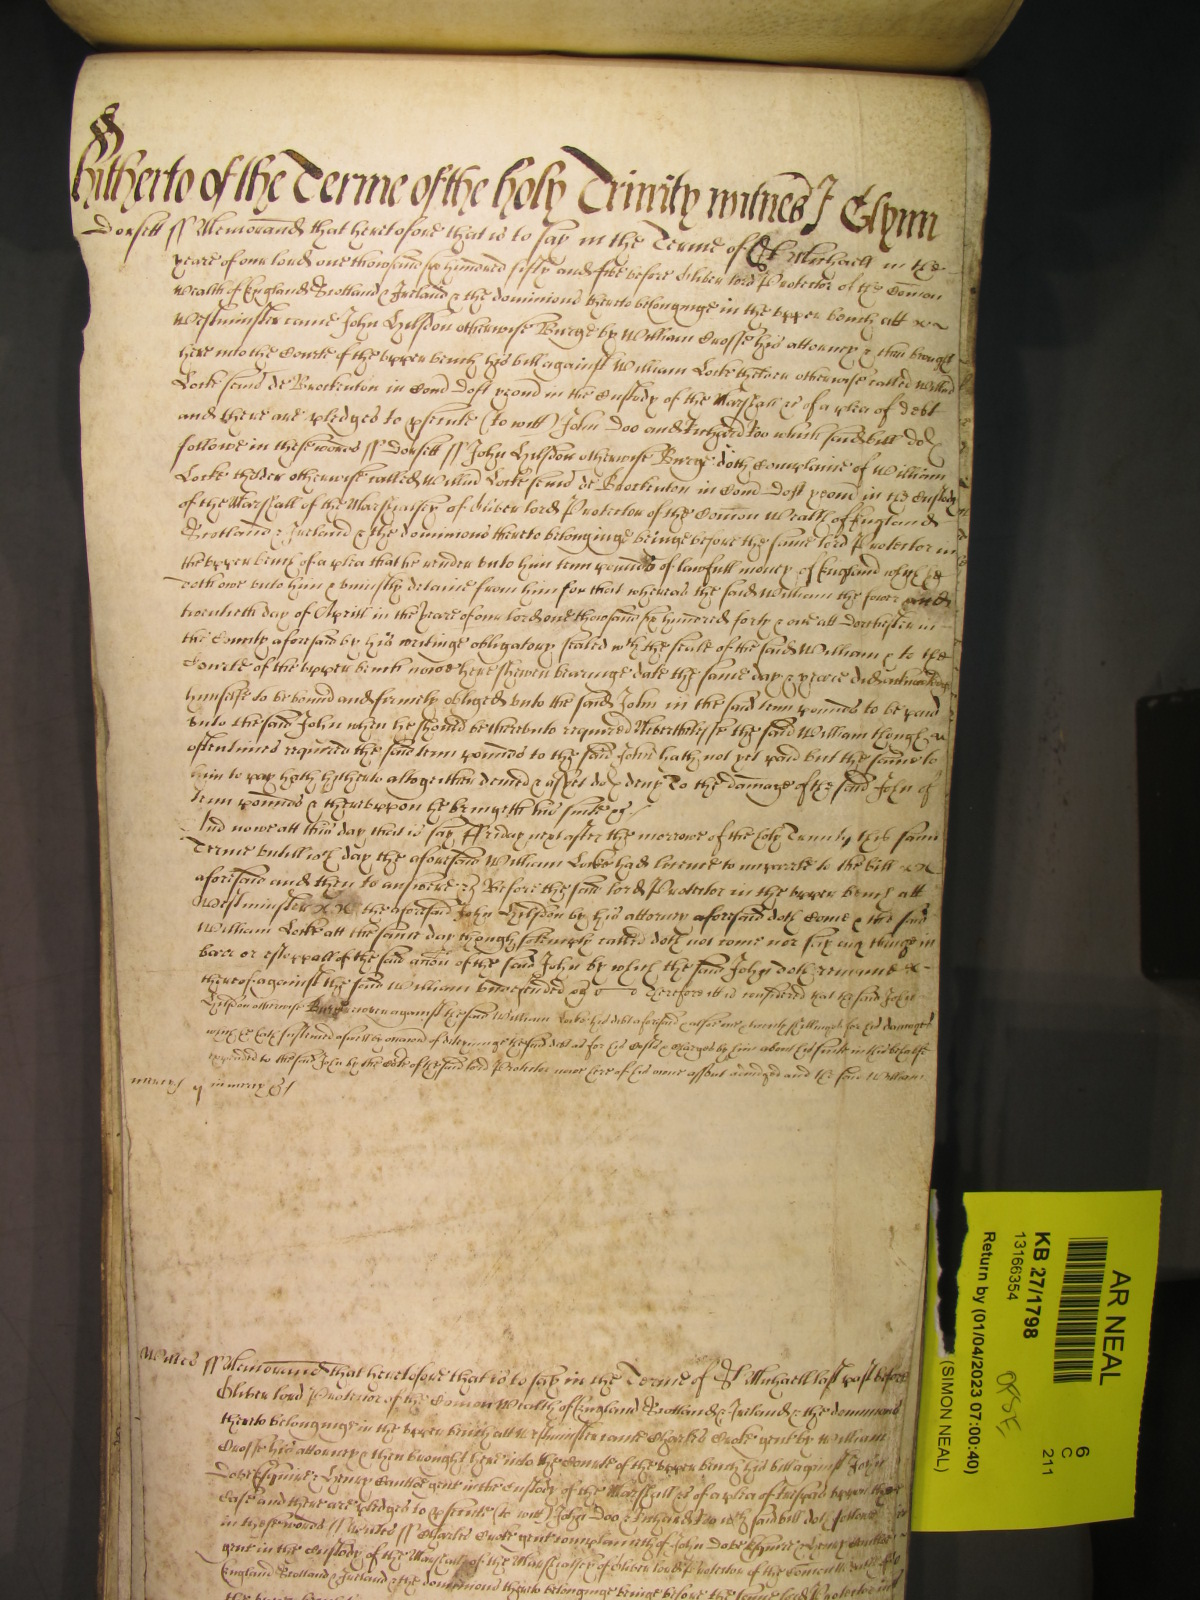 hitherto of the Terme of the holy Trinity witnes J Glynn
Dorsett ss Memorand that heretofore that is to say in the Terme of St Michaell in the
yeare of our lord one thowsand six hundred fifty and five before Oliver lord Protector of the Comon
wealth of England Scotland & Ireland & the dominions thereto belonginge in the upper bench att
Westminster came John Gilsdon otherwise Burge by William Crosse his attorney & then brought
here into the Courte of the upper bench his bill against William Locke otherwise called Willm
Locke send de Brockenton in Com Dost yeom in the Custody of the Marshall &c of a plea of debt
and there are pledges to psecute (to witt) John Doo and Richard Roo which said bill doth
followe in these words ss Dorsett ss John Gilsdon otherwise Burge doth Complaine of William
Locke otherwise called Willm Locke send de Brockenton in Com Dost yeom in the Custody
of the Marshall of the Marshalsey of Oliver lord Protector of the Comon Wealth of England
Scotland & Ireland & the dominions thereto belonginge beinge before the same lord Protector in
the upper bench of a plea that he render unto him tenn pounds of lawfull money of England which he
doth owe unto him & uniustly detaine from him for that whereas the said William the fower and
twentieth day of Aprill in the yeare of our lord one thowsand six hundred forty & one att Dorchester in
the County aforesaid by his writinge obligatory sealed wth the seale of the said William & to the
Courte of the upper bench nowe here shewen bearinge date the same day & yeare did acknowledge
himselfe to be bound and firmely obliged unto the said John in the said tenn pounds to be paid
unto the said John when he should be thereunto required Neverthelesse the said William though
oftentimes required the said tenn pounds to the said John hath not yet paid but the same to
him to pay hath hitherto altogether denied & as yet doth deny To the damage of the said John of
tenn pounds & thereuppon he bringeth his suite &c
And nowe att this day that is to say Friday next after the morrowe of the holy Trinity this same
Terme untill wch day the aforesaid William Locke had licence to imparle to the bill
aforesaid and then to answere &c Before the said lord Protector in the upper bench att
Westminster the aforesaid John Gilsdon by his attorney aforesaid doth Come & the said
William Locke att the same day though solempnly called doth not come nor say any thinge in
barr or estoppall of the said accon of the said John by which the said John doth remaine
thereof against the said William undefended &c Therefore it is considered that the said John
Gilsdon otherwise Burge recover against the said William Locke his debt aforesaid & alsoe shillings for his damages
which he hath susteined aswell by occacon of deteyninge the said debt as for his Costs & Charges by him about his suite in this behalfe
expended to the said John by the Courte of the said lord Protector nowe here of his owne assent adiudged and the said William
mercy in mercy &c
ss Memorand that heretofore that is to say in the Terme of St Michaell last past before
Oliver lord Protector of the Comon Wealth of England Scotland & Ireland & the dominions
thereto belonginge in the upper bench att Westminster came Charles gent by William
Crosse his attorney & then brought here into the Courte of the upper bench his bill against John
Esquire & Henry gent in the Custody of the Marshall &c of a plea of trespas uppon the
Case and there are pledges to psecute (to witt) John Doo & Richard Roo wch said bill doth followe
in these words ss ss Charles gent complaineth of John Esquire & Henry
gent in the Custody of the Marshall of the Marshalsey of Oliver lord Protector of the Comon Wealth of
England Scotland & Ireland & the dominions thereto belonginge beinge before the same lord Protector in
the upper bench
AR NEAL
6
C
211
KB 27/1798
13166354
Return by (01/04/2023 07:00:40)
(SIMON NEAL)